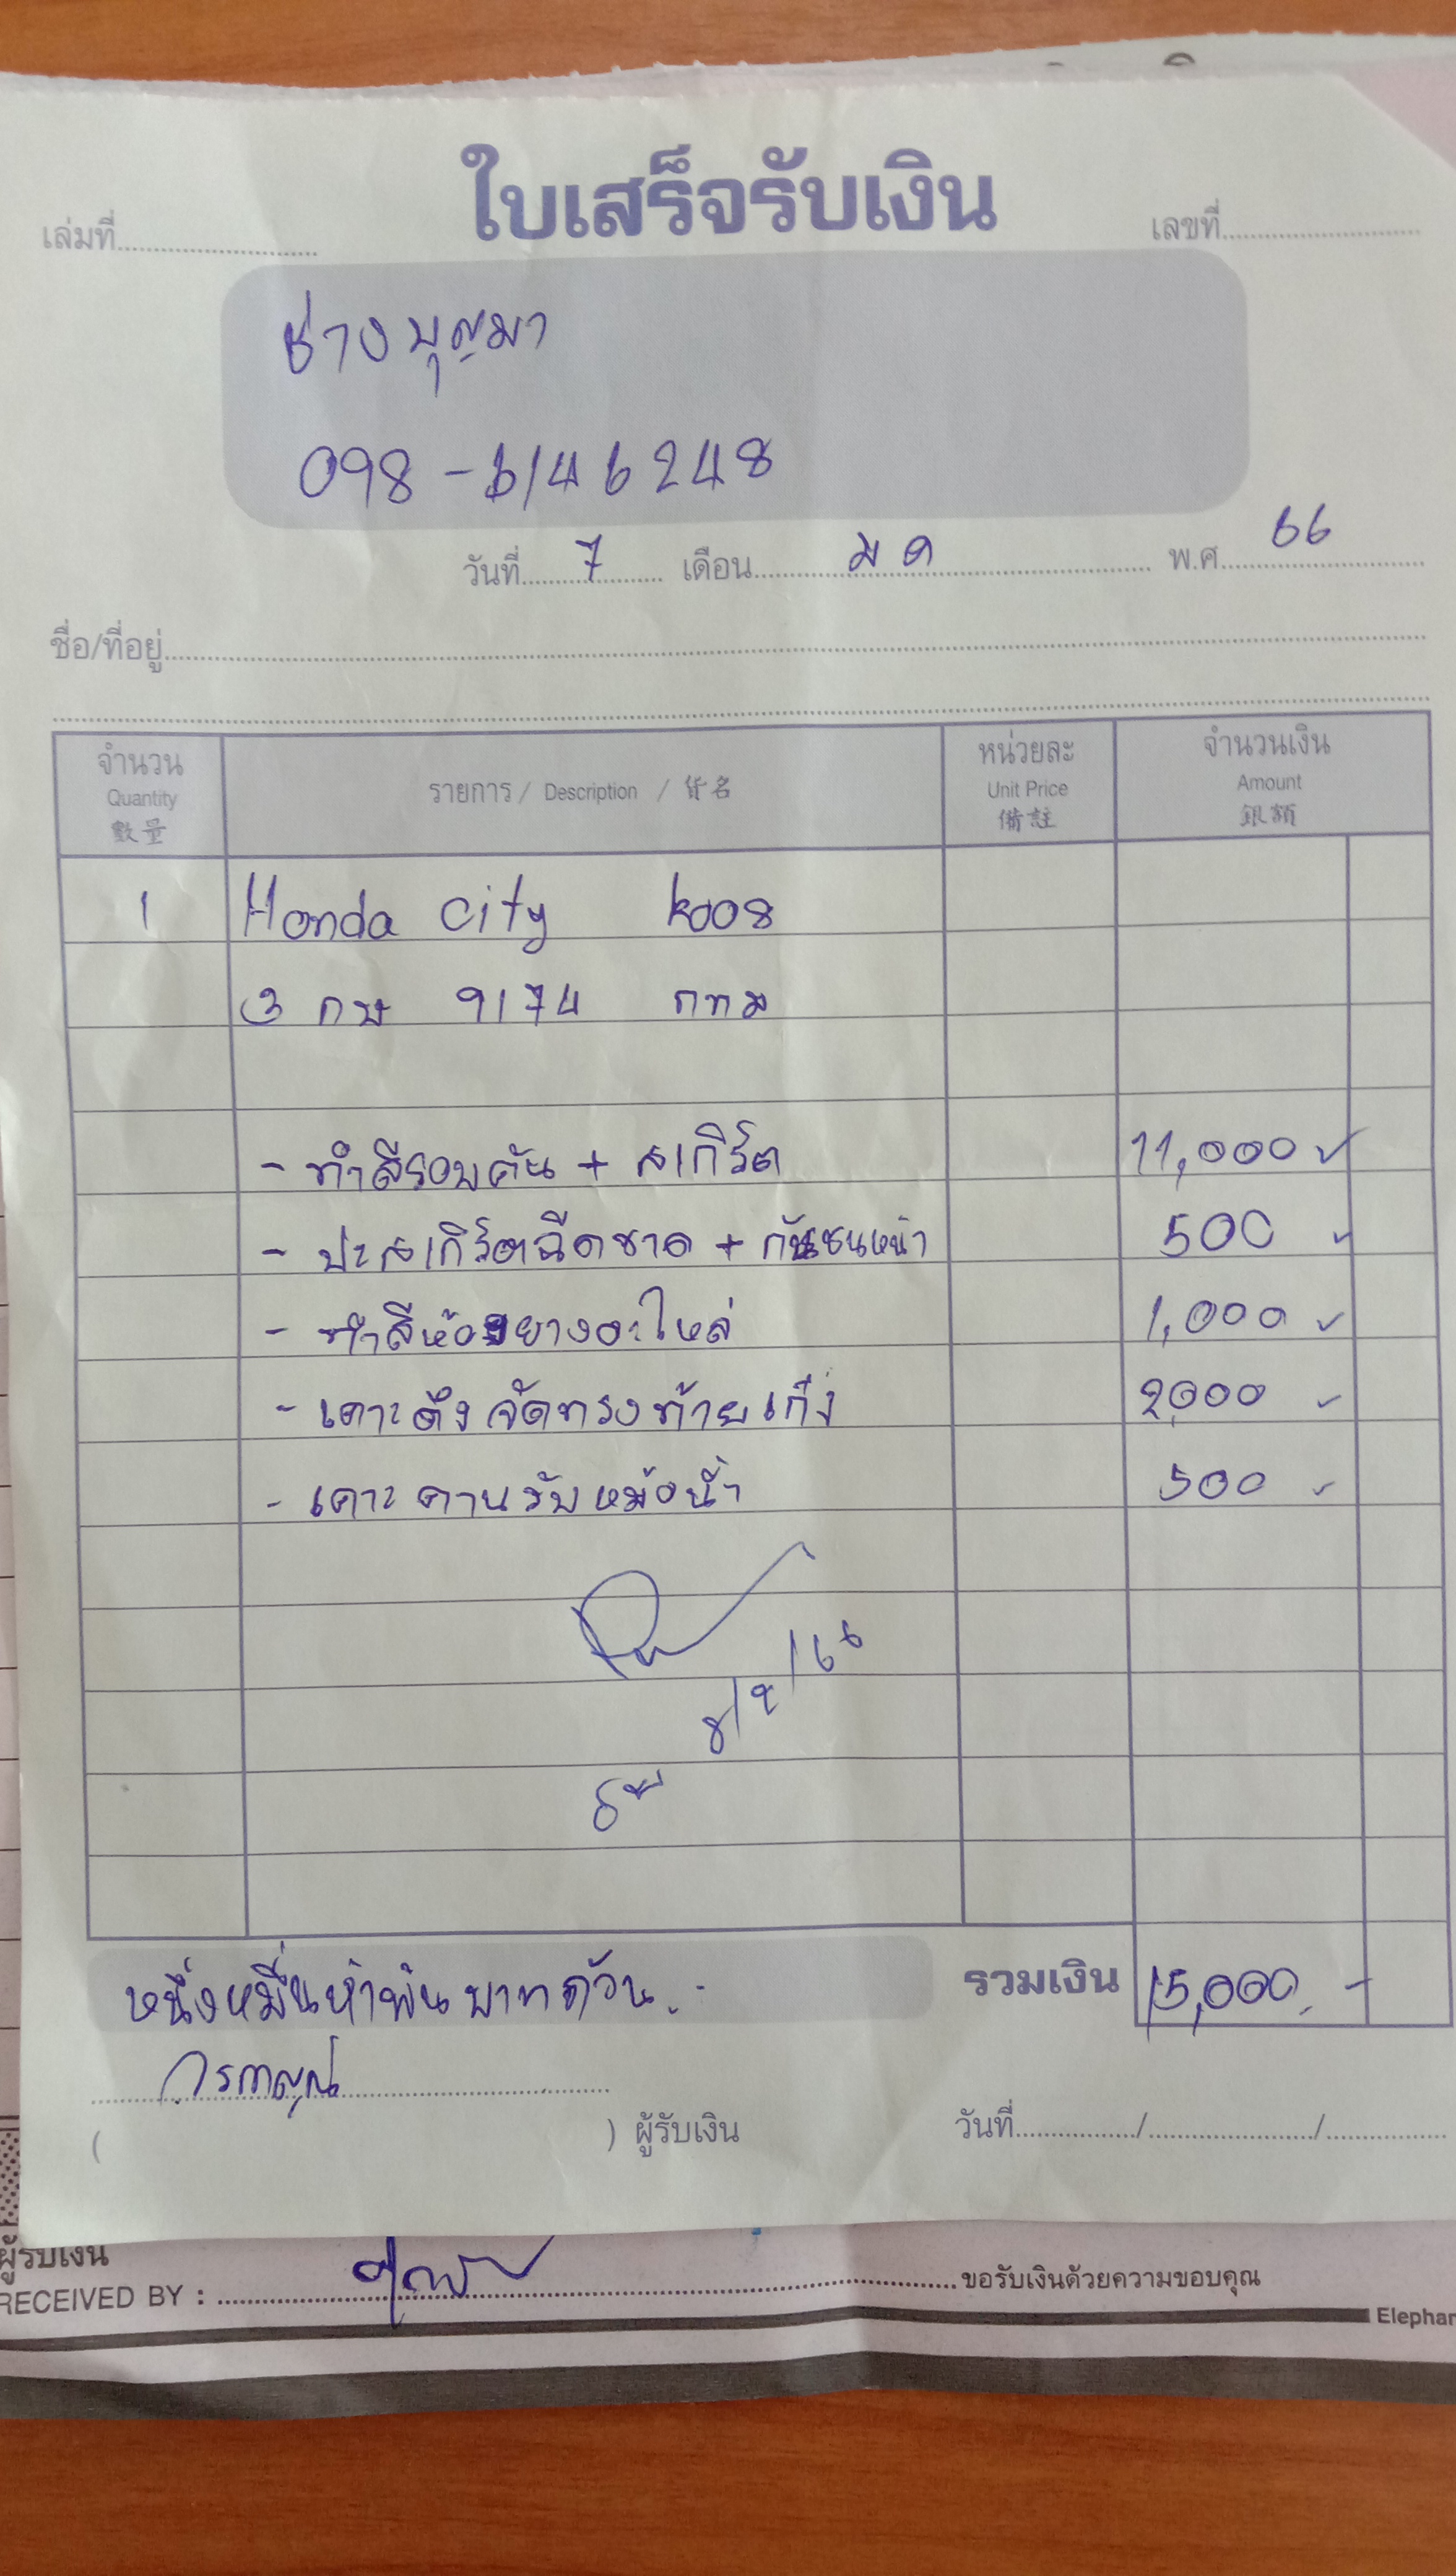 ใบเสร็จรับเงิน
เล่มที่ เลขที่
ช่างบุญมา
098-6146248
วันที่ 7 เดือน มีค พ.ศ. 66
ชื่อ/ที่อยู่
จำนวน รายการ / Description / 貨名 หน่วยละ จำนวนเงิน
Quantity Unit Price Amount
數量 備註 銀額
1 Honda City k008
3 กษ 9174 กทม
- ทำสีรอบคัน + สเกิร์ต 11,000
- ปะสเกิร์ตฉีดขาด + กันชนหน้า 500
- ทำสีห้องยางอะไหล่ 1,000
- เคาะดึงจัดทรงท้ายเก๋ง 2,000
- เคาะคานรับหม้อน้ำ 500
หนึ่งหมื่นห้าพันบาทถ้วน.- รวมเงิน 15,000.-
( ) ผู้รับเงิน วันที่ / /
ผู้รับเงิน
RECEIVED BY : ขอรับเงินด้วยความขอบคุณ